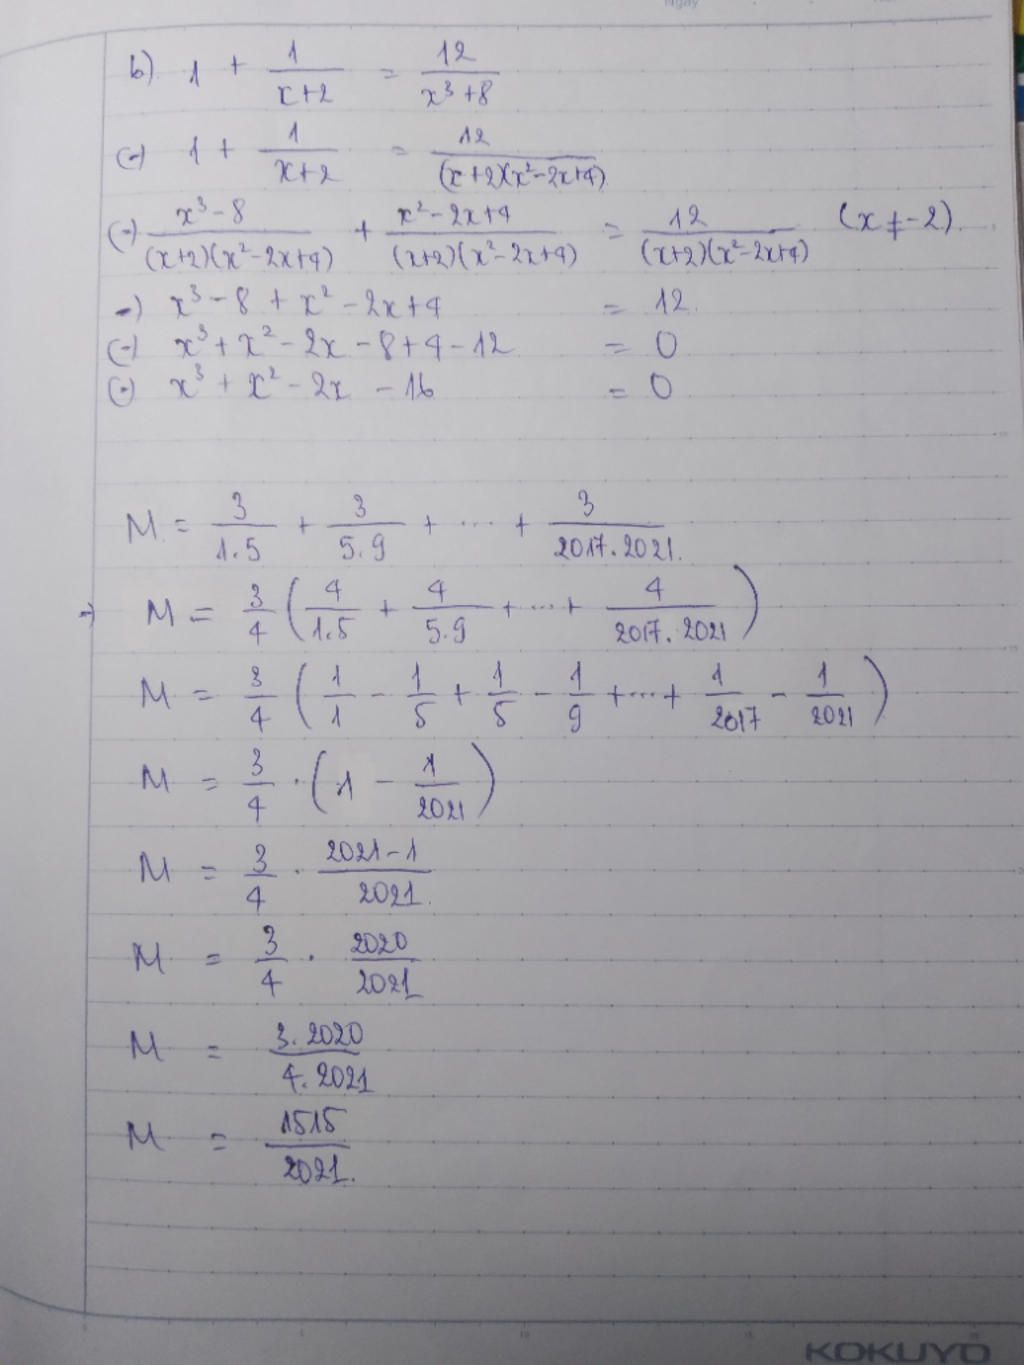 Ngày
b) 1 + 1/(x+2) = 12/(x³+8)
(=) 1 + 1/(x+2) = 12/((x+2)(x²-2x+4))
(=) (x³-8)/((x+2)(x²-2x+4)) + (x²-2x+4)/((x+2)(x²-2x+4)) = 12/((x+2)(x²-2x+4)) (x ≠ -2).
=) x³ - 8 + x² - 2x + 4 = 12.
(=) x³ + x² - 2x - 8 + 4 - 12 = 0
(=) x³ + x² - 2x - 16 = 0
M = 3/(1.5) + 3/(5.9) + ... + 3/(2017.2021.)
=) M = 3/4 (4/(1.5) + 4/(5.9) + ... + 4/(2017.2021))
M = 3/4 (1/1 - 1/5 + 1/5 - 1/9 + ... + 1/2017 - 1/2021)
M = 3/4 . (1 - 1/2021)
M = 3/4 . (2021-1)/2021.
M = 3/4 . 2020/2021
M = (3.2020)/(4.2021)
M = 1515/2021.
KOKUYO